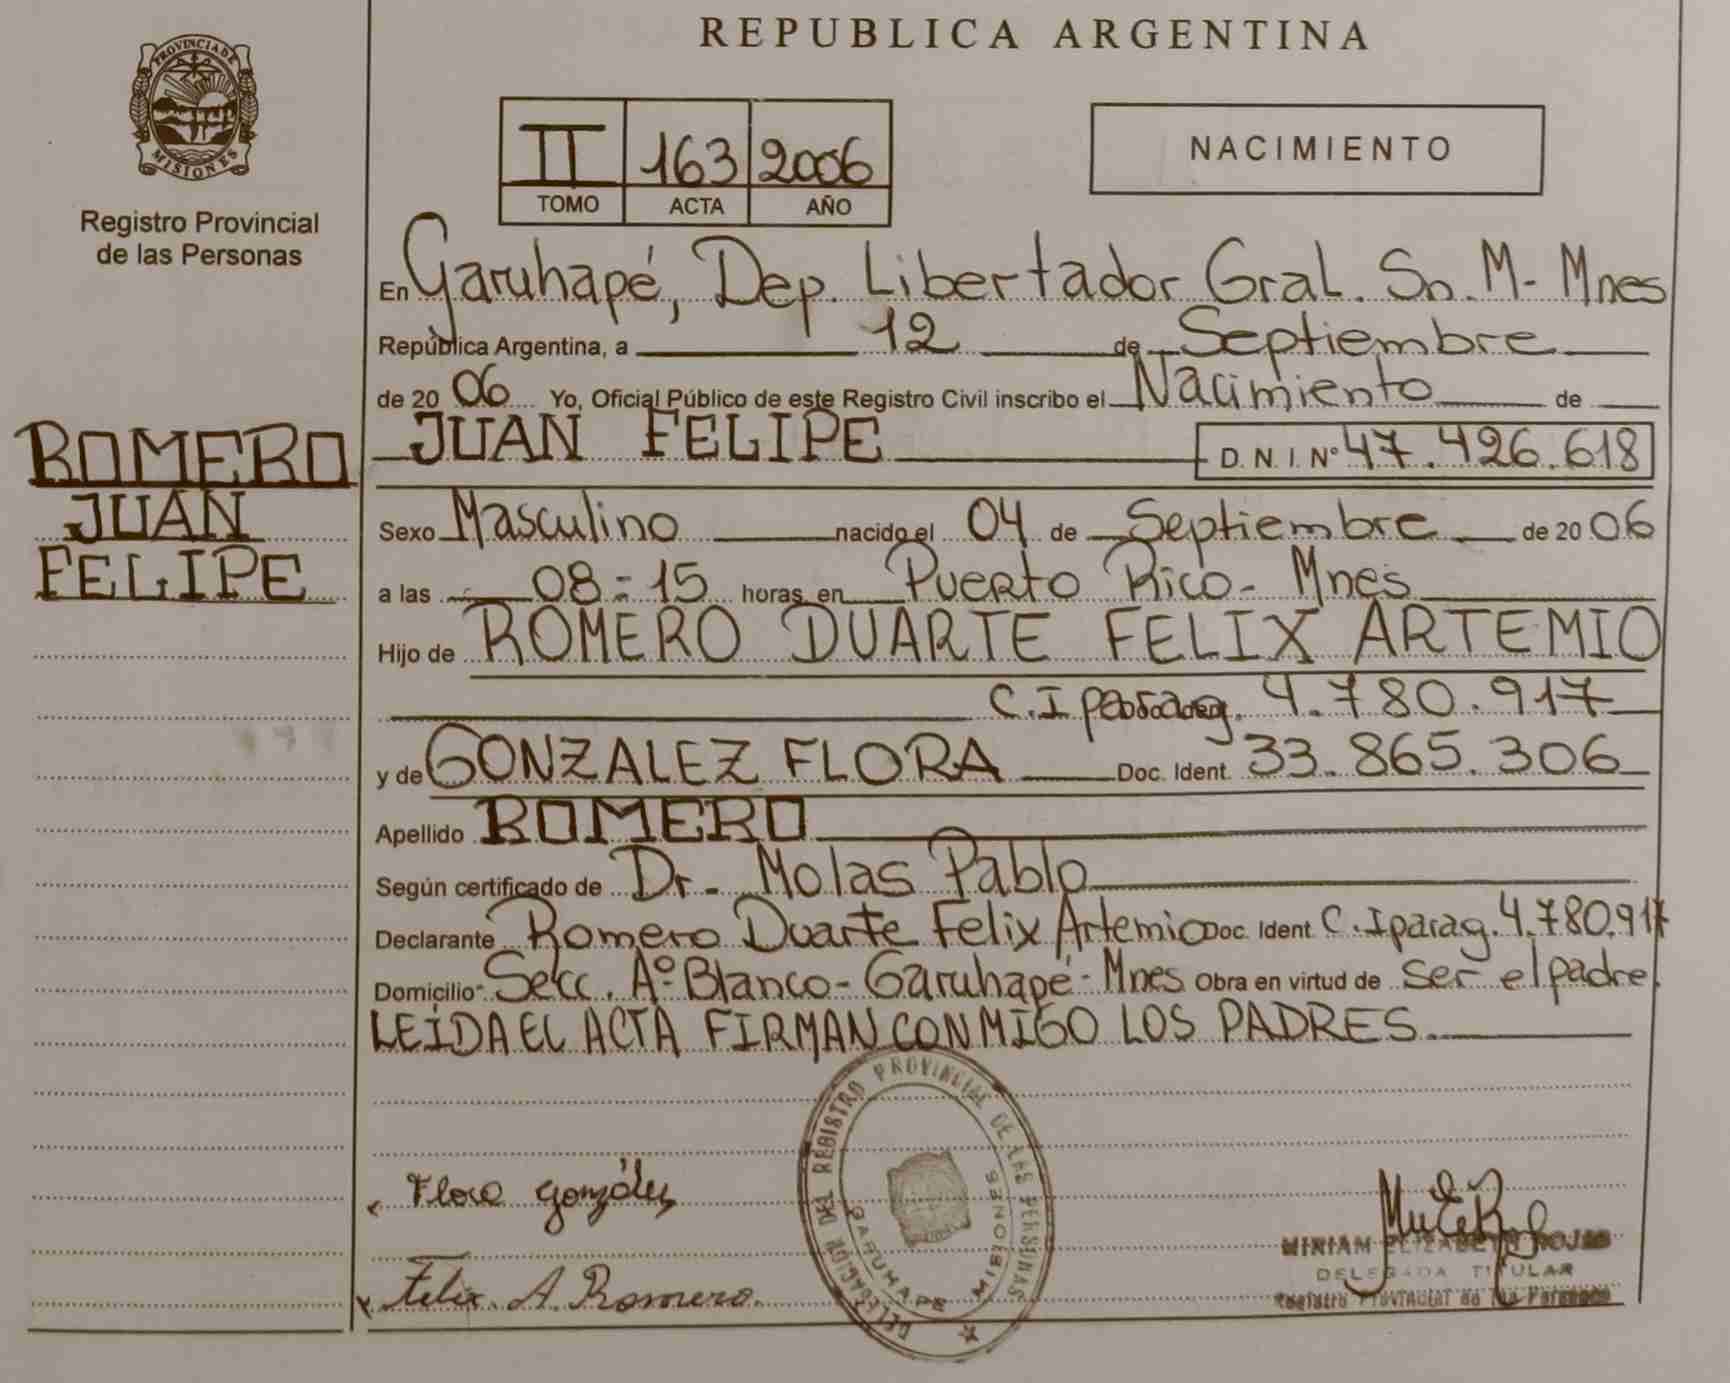 REPUBLICA ARGENTINA
PROVINCIA DE
MISIONES
Registro Provincial
de las Personas
II 163 2006
TOMO ACTA AÑO
NACIMIENTO
En Garuhapé, Dep. Libertador Gral. Sn. M- Mnes
República Argentina, a 12 de Septiembre
de 20 06 Yo, Oficial Público de este Registro Civil inscribo el Nacimiento de
JUAN FELIPE D. N. I. Nº 47.426.618
ROMERO
JUAN
FELIPE
Sexo Masculino nacido el 04 de Septiembre de 20 06
a las 08-15 horas, en Puerto Rico- Mnes
Hijo de ROMERO DUARTE FELIX ARTEMIO
C.I parag. 4.780.917
y de GONZALEZ FLORA Doc. Ident. 33.865.306
Apellido ROMERO
Según certificado de Dr- Molas Pablo
Declarante Romero Duarte Felix Artemio Doc. Ident C.I parag. 4.780.917
Domicilio Secc. Aº Blanco- Garuhapé- Mnes Obra en virtud de ser el padre.
LEÍDA EL ACTA FIRMAN CONMIGO LOS PADRES.
DELEGACION DEL REGISTRO PROVINCIAL DE LAS PERSONAS
GARUHAPE MISIONES
Flora González
Felix. A. Romero.
MIRIAM ELIZABETH ROJAS
DELEGADA TITULAR
Registro Provincial de las Personas